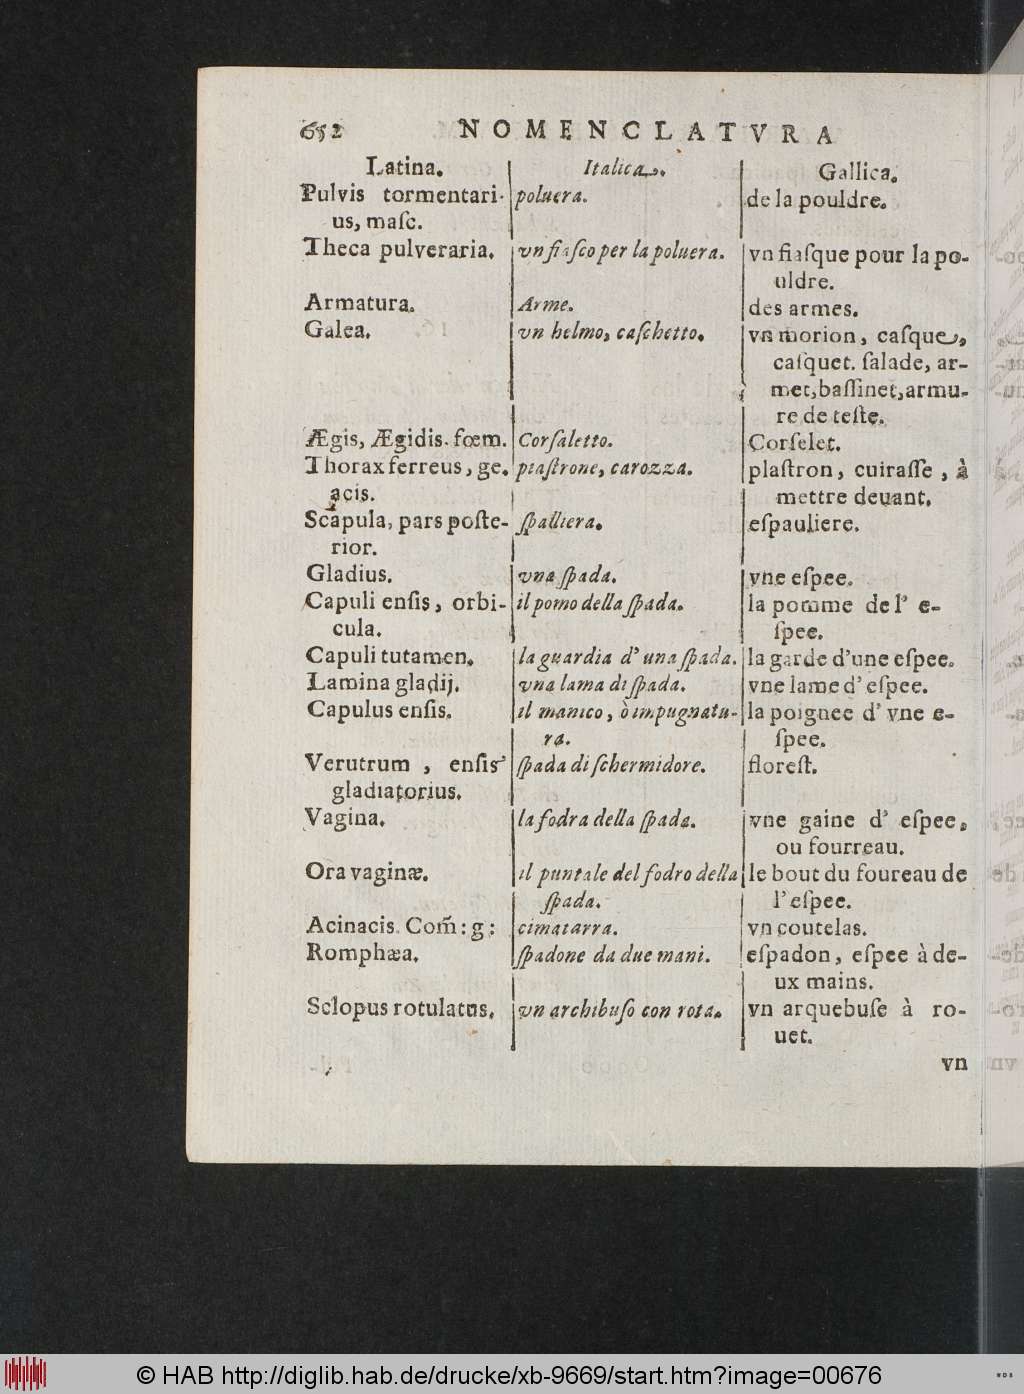 652 NOMENCLATVRA
Latina. Italica. Gallica.
Pulvis tormentari- poluera. de la pouldre.
us, maſc.
Theca pulveraria. vn fiaſco per la poluera. vn fiaſque pour la po-
uldre.
Armatura. Arme. des armes.
Galea. vn helmo, caſchetto. vn morion, caſque,
caſquet. ſalade, ar-
met, baſſinet, armu-
re de teſte.
Ægis, Ægidis. fœm. Corſaletto. Corſelet.
Thorax ferreus, ge. piaſtrone, carozza. plaſtron, cuiraſſe, à
acis. mettre deuant.
Scapula, pars poſte- ſpalliera. eſpauliere.
rior.
Gladius. vna ſpada. vne eſpee.
Capuli enſis, orbi- il pomo della ſpada. la pomme de l' e-
cula. ſpee.
Capuli tutamen. la guardia d' una ſpada. la garde d'une eſpee.
Lamina gladij. vna lama di ſpada. vne lame d' eſpee.
Capulus enſis. il manico, ò impugnatu- la poignee d' vne e-
ra. ſpee.
Verutrum, enſis ſpada di ſchermidore. floreſt.
gladiatorius.
Vagina. la fodra della ſpada. vne gaine d' eſpee,
ou fourreau.
Ora vaginæ. il puntale del fodro della le bout du foureau de
ſpada. l'eſpee.
Acinacis. Com̃: g: cimatarra. vn coutelas.
Romphæa. ſpadone da due mani. eſpadon, eſpee à de-
ux mains.
Sclopus rotulatus. vn archibuſo con rota. vn arquebuſe à ro-
uet.
vn
© HAB http://diglib.hab.de/drucke/xb-9669/start.htm?image=00676